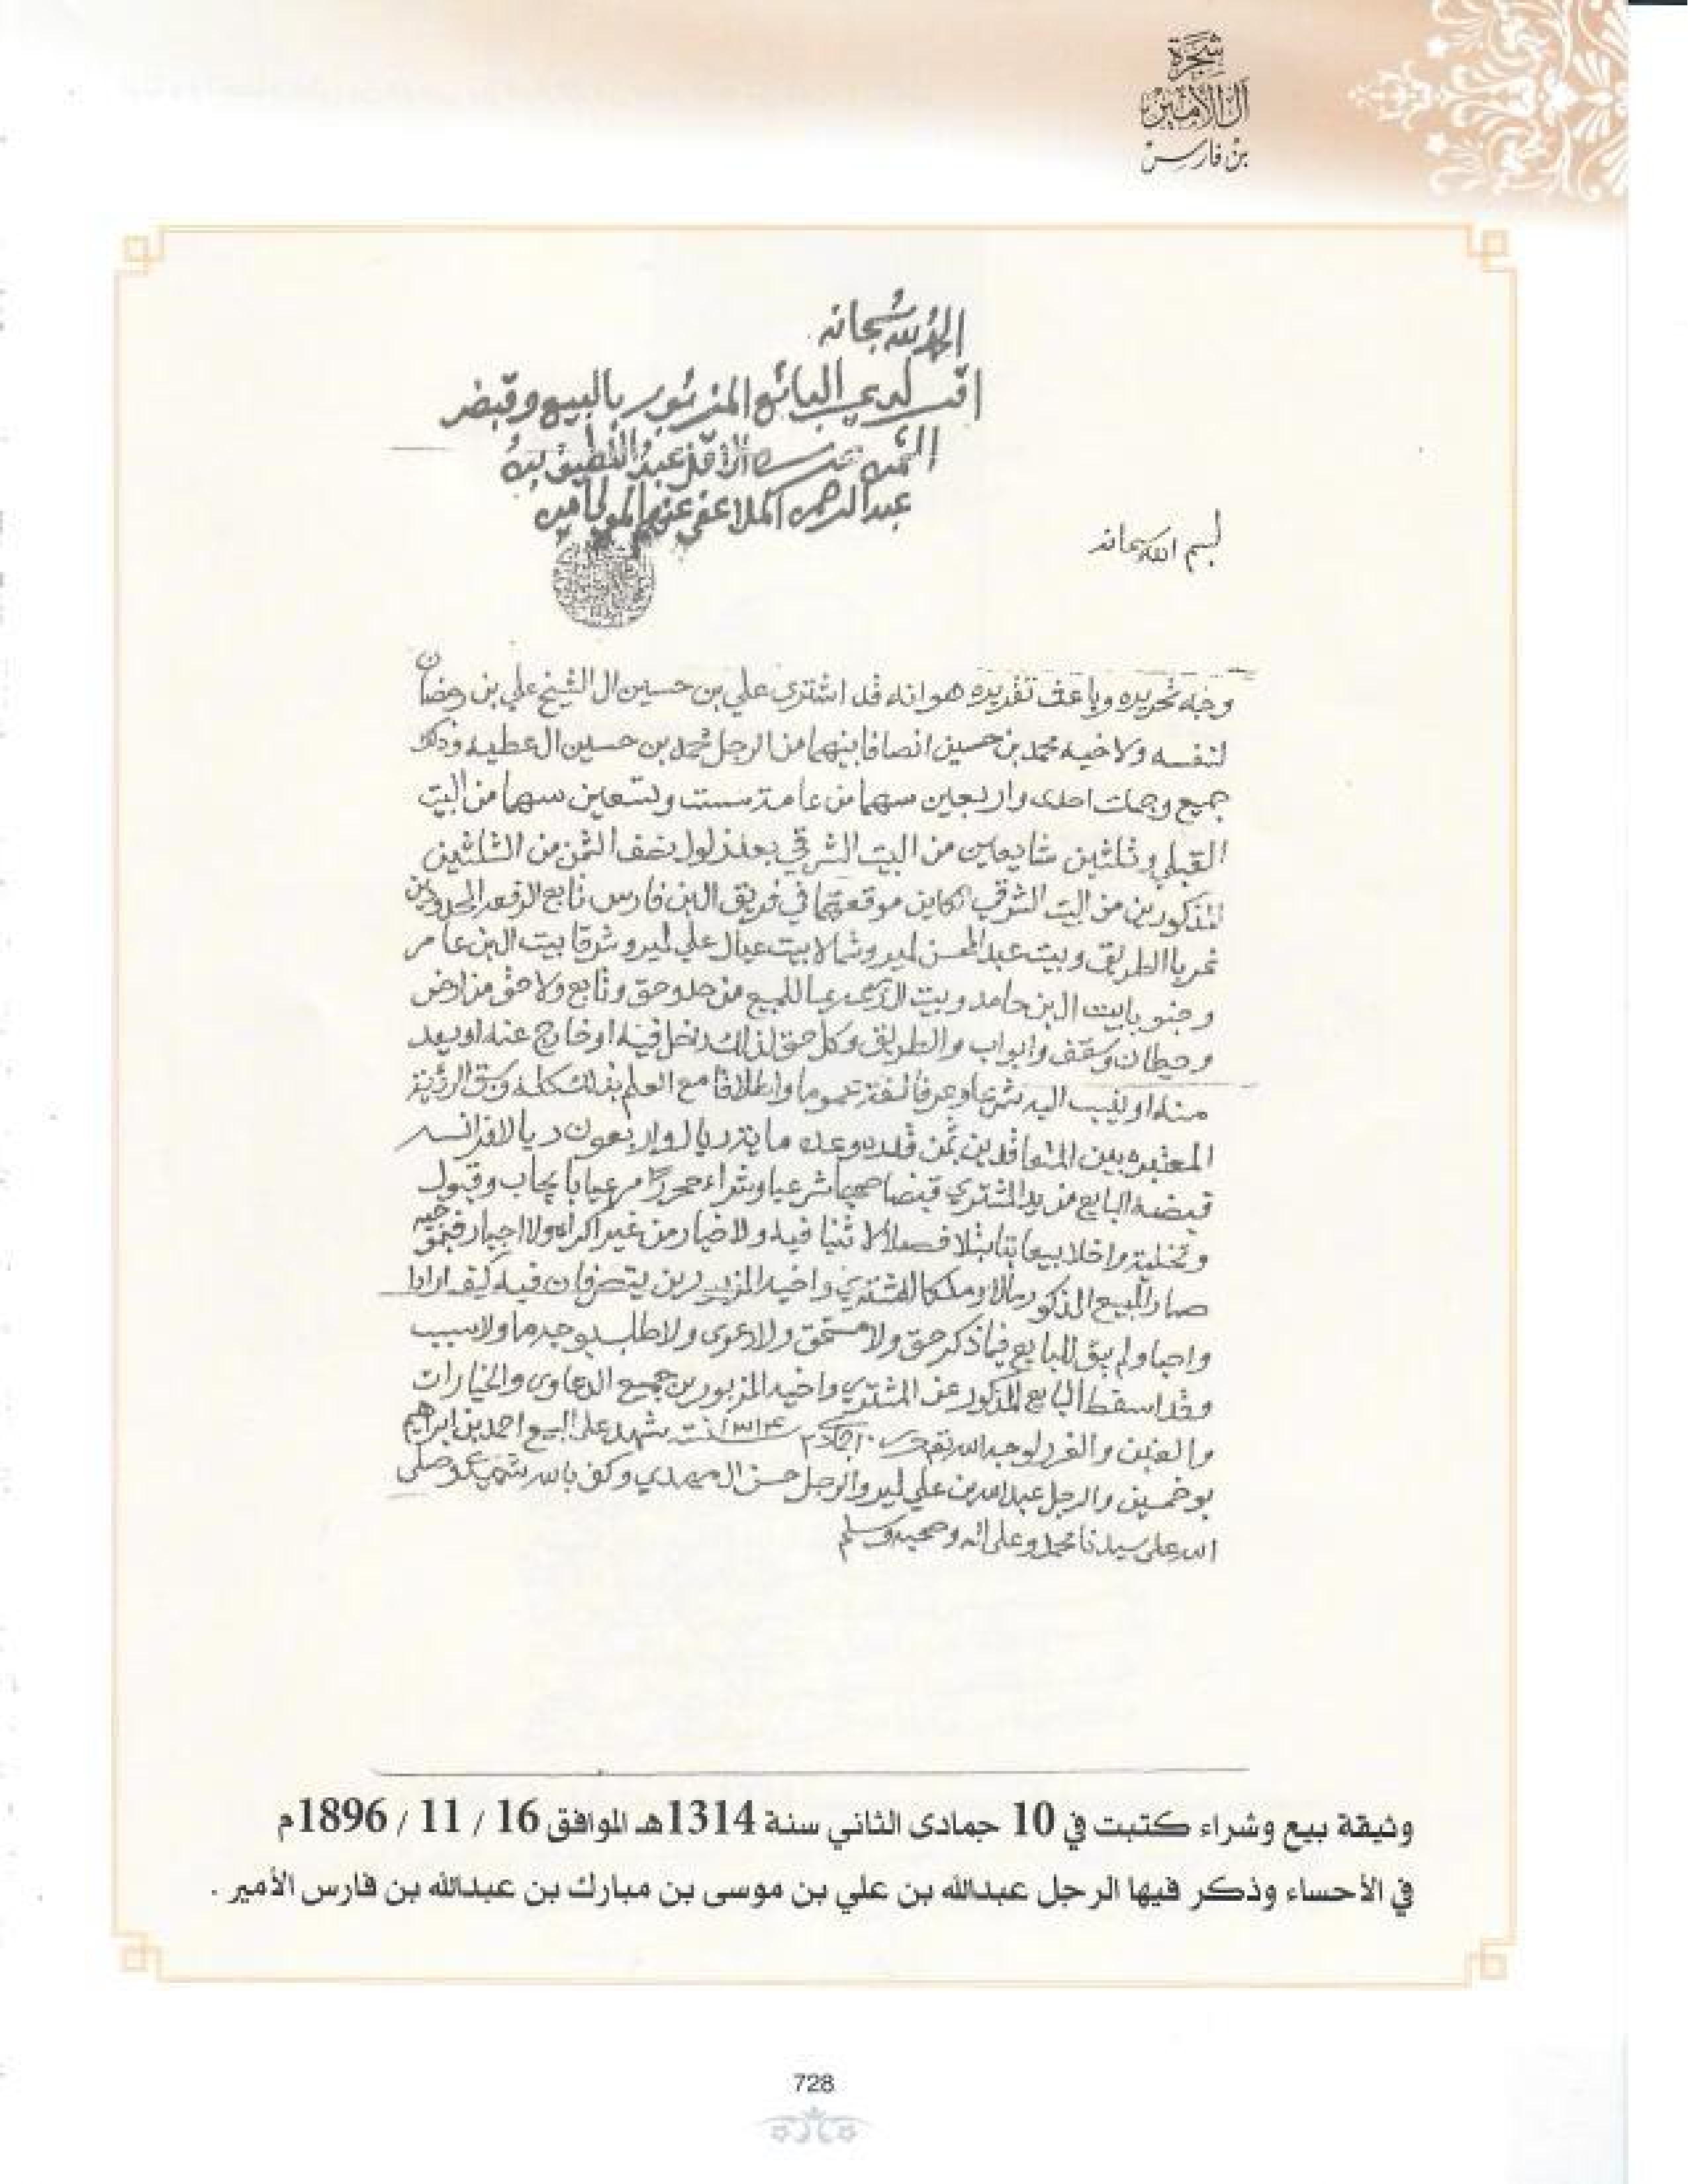 شجرة
آل الأمير
بن فارس
الحمد لله سبحانه
اقر لدي البائع المزبور بالبيع وقبض
الثمن الاقل عبد اللطيف بن
عبد الرحمن الملا عفي عنهم المولى امين
بسم الله سبحانه
وجه تحريره وباعث تقريره هو انه قد اشترى علي بن حسين ال الشيخ علي بن رمضان
لنفسه ولاخيه محمد بن حسين انصافا بينهما من الرجل محمد بن حسين ال عطيه وذلك
جميع وجملت احدى واربعين سهما من عامة ست وتسعين سهما من البيت
القبلي وثلثين شايعين من البيت الشرقي بعد نصف الثمن من الثلثين
المذكورين من البيت الشرقي الكاين موقعهما في فريق ال بن فارس تابع الرفعه المحدودين
غربا الطريق وبيت عبد المحسن لمير وشمالا بيت عيال علي لمير وشرقا بيت ال بن عامر
وجنوبا بيت ال بن حامد وبيت للمبيع من حد وحق وتابع ولاحق من ارض
وحيطان وسقف وابواب والطريق وكل حق لذلك داخل فيه او خارج عنه او يعد
منه او ينسب اليه شرعا وعرفا لغة عموما واطلاقا مع العلم بذلك كله وسبق الرؤية
المعتبره بين المتعاقدين بثمن قدره وعدده ماية ريال واربعون ريالا فرانسه
قبضه البايع من يد المشتري قبضا صحيحا شرعيا وشراء محررا مرعيا بايجاب وقبول
وتخلية واخلا بيعا بتا بتلا فصلا لا ثنيا فيه ولا خيار من غير اكراه ولا اجبار فبموجبه
صار المبيع المذكور مالا وملكا للمشتري واخيه المزبورين يتصرفان فيه كيف ارادا
واحبا ولم يبق للبايع فيما ذكر حق ولا مستحق ولا دعوى ولا طلب بوجه ما ولا سبب
وقد اسقط البايع المذكور عن المشتري واخيه المزبورين جميع الدعاوى والخيارات
والغبن والغرر لوجه الله تعـ ١٠ جماد ٢ سنة ١٣١٤ شهد على البيع احمد بن ابراهيم
بو خمسين والرجل عبد الله بن علي لمير والرجل حسن ال مهدي وكفى بالله شهيدا وصلى
الله على سيدنا محمد وعلى اله وصحبه وسلم
وثيقة بيع وشراء كتبت في 10 جمادى الثاني سنة 1314هـ الموافق 16 / 11 / 1896م
في الأحساء وذكر فيها الرجل عبدالله بن علي بن موسى بن مبارك بن عبدالله بن فارس الأمير .
728